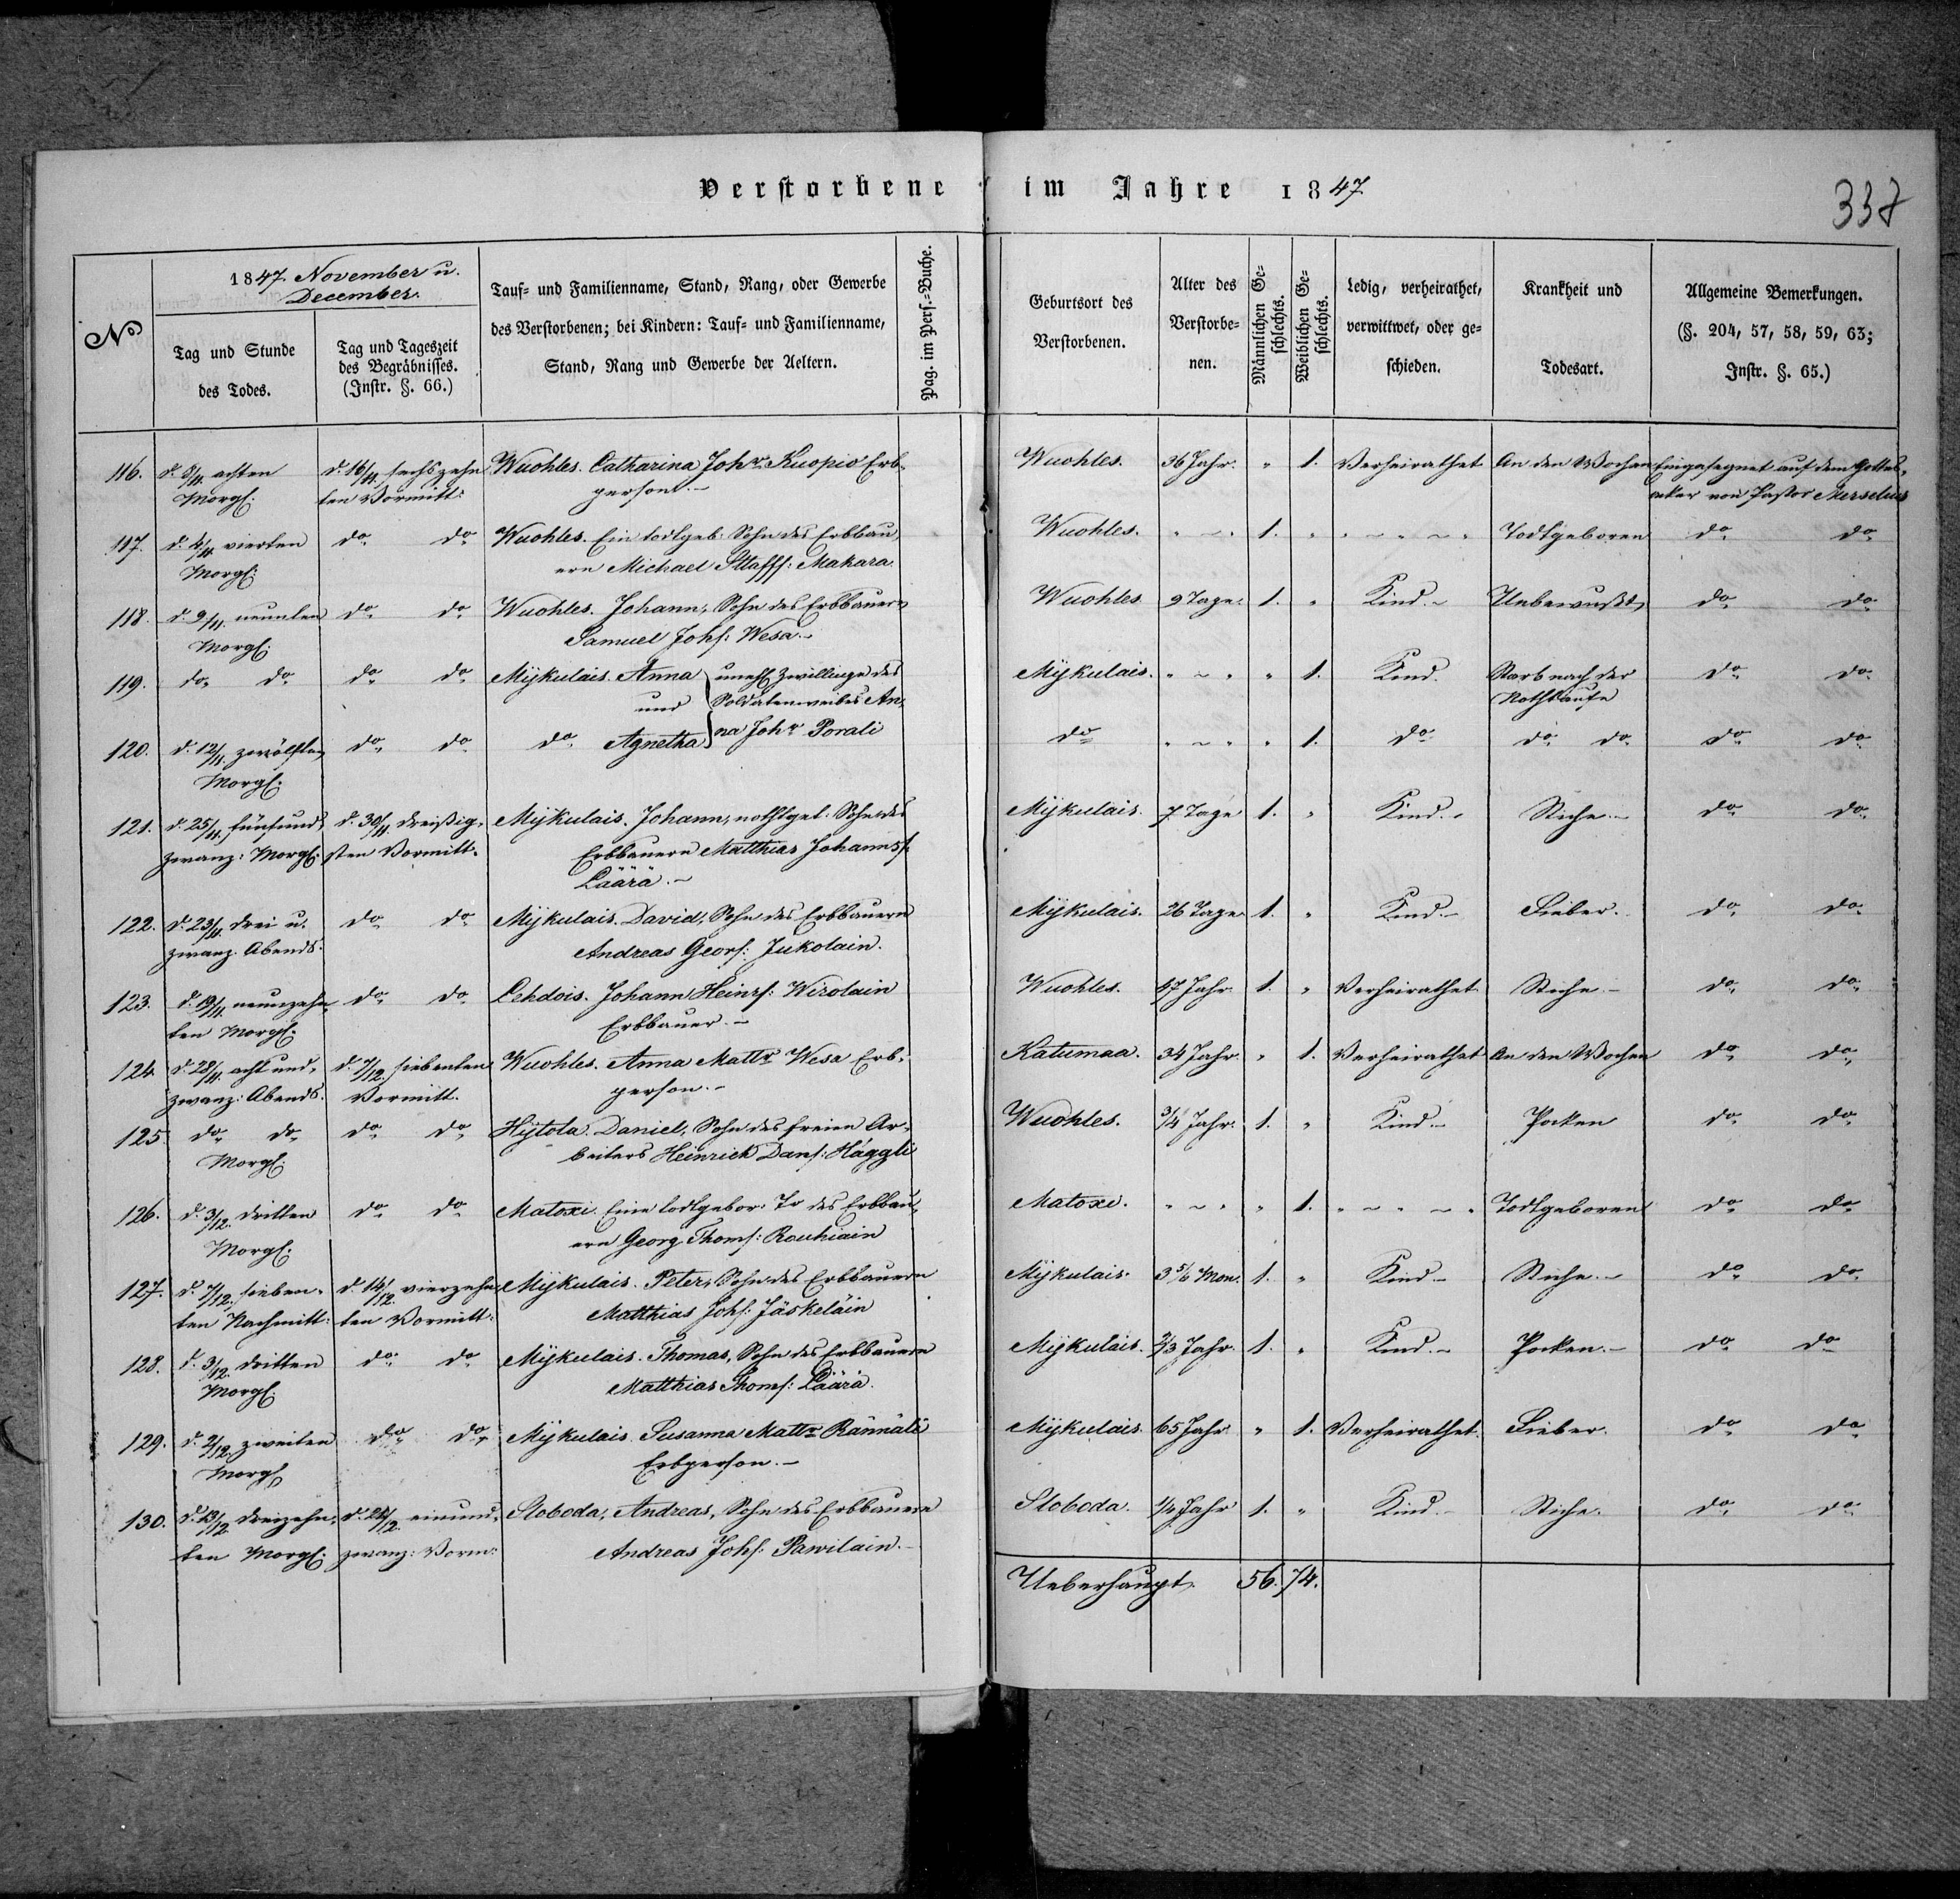 Verstorbene im Jahre 1847
337
No
1847. November u. December.
Tag und Stunde des Todes.
Tag und Tageszeit des Begräbnisses. (Instr. §. 66.)
Tauf- und Familienname, Stand, Rang, oder Gewerbe
des Verstorbenen; bei Kindern: Tauf- und Familienname,
Stand, Rang und Gewerbe der Aeltern.
Pag. im Pers.-Buche.
Geburtsort des Verstorbenen.
Alter des Verstorbe-nen.
Männlichen Ge-schlechts.
Weiblichen Ge-schlechts.
Ledig, verheirathet, verwittwet, oder ge-schieden.
Krankheit und Todesart.
Allgemeine Bemerkungen.
(§. 204, 57, 58, 59, 63; Instr. §. 65.)
116. d. 8/11. achten d. 16/11. sechszehn Wuohles. Catharina Johr. Kuopio Erb- Wuohles. 36 Jahr. " 1. Verheirathet An den Wochen Eingesegnet auf dem Gottes-
Morgs. ten Vormitt: person.- acker von Pastor Merselius
117. d. 4/11. vierten do do Wuohles. Ein todtgeb. Sohn des Erbbau- Wuohles. " ~ " 1. " " ~ " ~ " Todtgeboren do do
Morgs. ern Michael Staffs: Makara.
118. d. 9/11. neunten do do Wuohles. Johann, Sohn des Erbbauern Wuohles 9 Tage. 1. " Kind.- Unbewußt, do do
Morgs. Samuel Johs: Wesa.-
119. do do do do Mÿkulais. Anna unehl. Zwillinge des Mÿkulais. " ~ " " 1. Kind. Starb nach der do do
und Soldatenweibes An- Nothtaufe
120. d. 12/11. zwölften do do do Agnetha na Johr. Porali do " ~ " " 1. do do do do do
Morgs.
121. d. 25/11. fünfund- d. 30/11. dreißig- Mÿkulais. Johann, nothtget. Sohn des Mÿkulais. 7 Tage 1. " Kind.- Stiche.- do do
zwanz: Morgs. sten Vormitt. Erbbauern Matthias Johanns:
Läärä.-
122. d. 23/11. drei u. do do Mÿkulais. David, Sohn des Erbbauern Mÿkulais. 26 Tage 1. " Kind.- Fieber. do do
zwanz. Abends. Andreas Geors: Jukolain.
123. d. 19/11. neunzehn- do do Lehdois. Johann Heinrs: Wirolain Wuohles. 47 Jahr. 1. " Verheirathet Stiche.- do do
ten Morgs. Erbbauer.-
124. d. 28/11. acht und- d. 7/12. siebenten Wuohles. Anna Mattr. Wesa Erb- Katumaa. 34 Jahr. " 1. Verheirathet An den Wochen do do
zwanz: Abends. Vormitt. person.-
125 do do do do Hÿtola. Daniel, Sohn des freien Ar- Wuohles. 3/4 Jahr. 1. " Kind.- Pocken do do
Morgs. beiters Heinrich Dans: Häggli
126. d. 3/12. dritten do do Matoxi. Eine todtgebor. Tr des Erbbau- Matoxi. " ~ " " 1. " ~ " ~ " Todtgeboren do do
Morgs. ern Georg Thoms: Rouhiain
127. d. 7/12. sieben- d. 14/12. vierzehn- Mÿkulais. Peter, Sohn des Erbbauern Mÿkulais. 3 5/6 Mon. 1. " Kind- Stiche.- do do
ten Nachmitt: ten Vormitt. Matthias Johs: Jäskeläin
128. d. 3/12. dritten do do Mÿkulais. Thomas, Sohn des Erbbauern Mÿkulais. 2/3 Jahr. 1. " Kind.- Pocken.- do do
Morgs. Matthias Thoms: Läärä.
129. d. 2/12. zweiten do do Mÿkulais. Susanna Mattr. Rännäli Mÿkulais. 65 Jahr. " 1. Verheirathet. Fieber. do do
Morgs. Erbperson.-
130. d. 13/12. dreizehn- d. 21/12. einund- Sloboda, Andreas, Sohn des Erbbauern Sloboda. 1/4 Jahr 1. " Kind.- Stiche. do do
ten Morgs. zwanz: Vorm: Andreas Johs: Pawilain.-
Ueberhaupt. 56. 74.